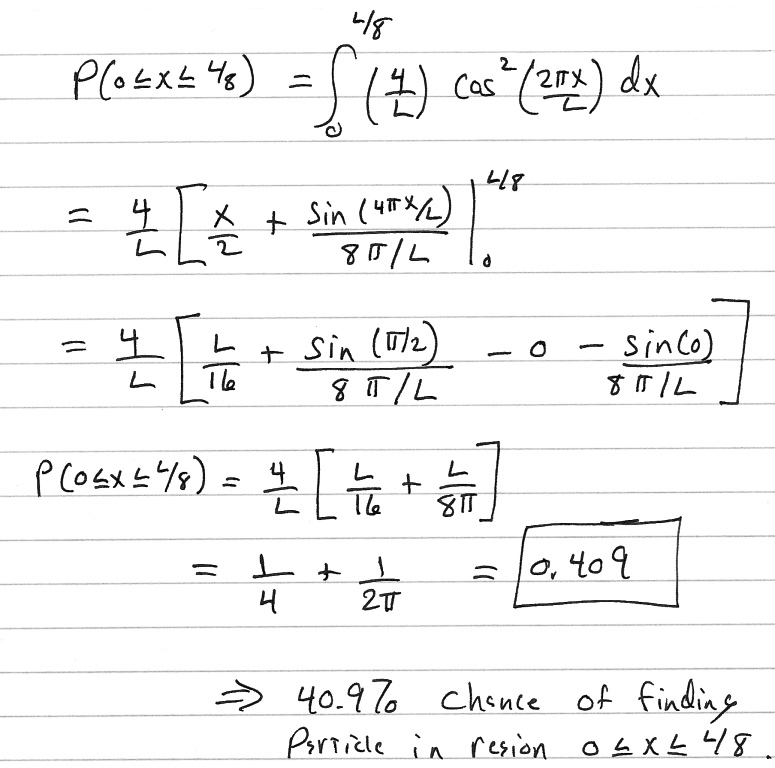 P(0≤x≤L/8) = ∫₀^{L/8} (4/L) cos²(2πx/L) dx
= 4/L [x/2 + sin(4πx/L)/(8π/L)]|₀^{L/8}
= 4/L [L/16 + sin(π/2)/(8π/L) - 0 - sin(0)/(8π/L)]
P(0≤x≤L/8) = 4/L [L/16 + L/8π]
= 1/4 + 1/2π = 0.409
⇒ 40.9% chance of finding
Particle in region 0≤x≤L/8.